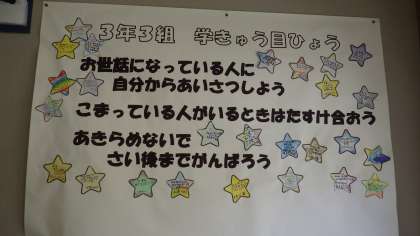 3年3組 学きゅう目ひょう
お世話になっている人に
自分からあいさつしよう
こまっている人がいるときはたすけ合おう
あきらめないで
さい後までがんばろう